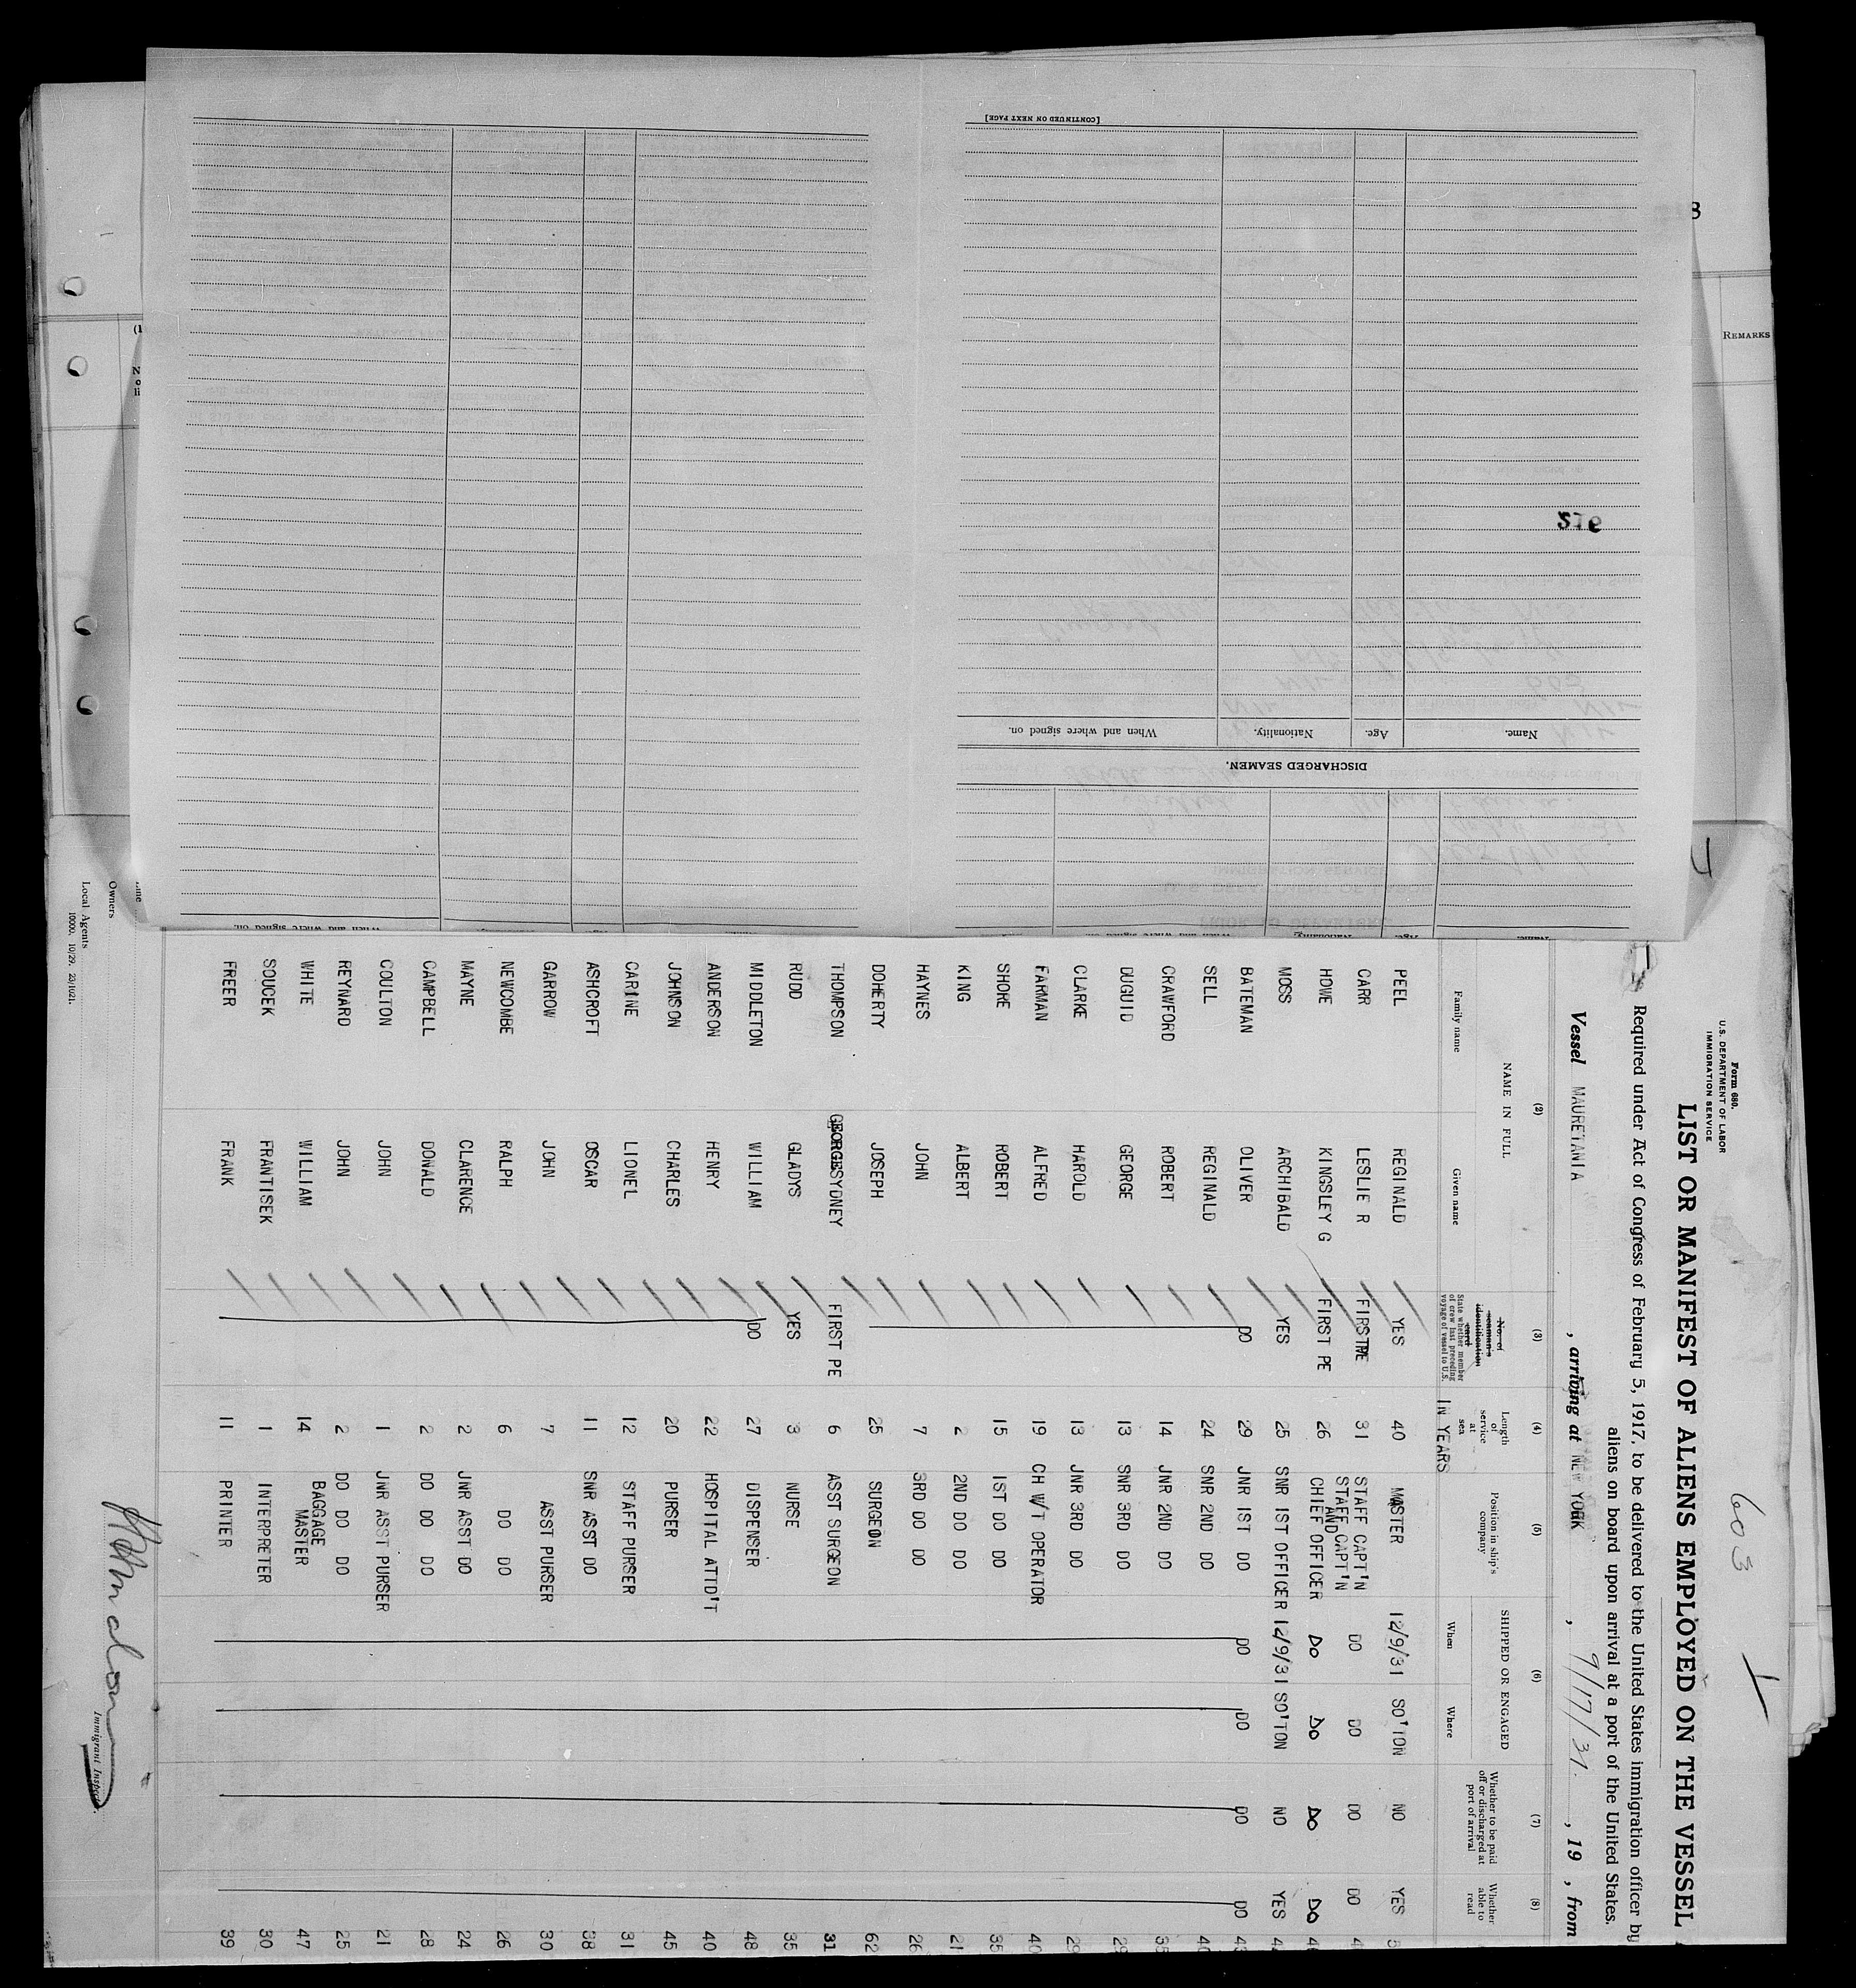 603
Form 680.
U.S. DEPARTMENT OF LABOR
IMMIGRATION SERVICE
LIST OR MANIFEST OF ALIENS EMPLOYED ON THE VESSEL
Required under Act of Congress of February 5, 1917, to be delivered to the United States immigration officer by
aliens on board upon arrival at a port of the United States.
Vessel MAURETANIA , arriving at NEW YORK , 9/17/31. , 19 , from
(2) (3) (4) (5) (6) (7) (8)
NAME IN FULL
Family name Given name
No. of seaman's identification card
State whether member of crew last preceding voyage of vessel to U.S.
Length of service at sea
IN YEARS
Position in ship's company
SHIPPED OR ENGAGED
When Where
Whether to be paid off or discharged at port of arrival
Whether able to read
PEEL REGINALD YES 40 MASTER 12/9/31 SO'TON NO YES
CARR LESLIE R FIRST 31 STAFF CAPT'N DO DO DO DO
HOWE KINGSLEY G FIRST PE 26 STAFF CAPT'N AND CHIEF OFFICER DO DO DO DO
MOSS ARCHIBALD YES 25 SNR 1ST OFFICER 12/9/31 SO'TON NO YES
BATEMAN OLIVER DO 29 JNR 1ST DO DO DO DO DO
SELL REGINALD 24 SNR 2ND DO
CRAWFORD ROBERT 14 JNR 2ND DO
DUGUID GEORGE 13 SNR 3RD DO
CLARKE HAROLD 13 JNR 3RD DO
FARMAN ALFRED 19 CH W/T OPERATOR
SHORE ROBERT 15 1ST DO DO
KING ALBERT 2 2ND DO DO
HAYNES JOHN 7 3RD DO DO
DOHERTY JOSEPH 25 SURGEON 62
THOMPSON GEORGE SYDNEY FIRST PE 6 ASST SURGEON 31
RUDD GLADYS YES 3 NURSE 35
MIDDLETON WILLIAM DO 27 DISPENSER 48
ANDERSON HENRY 22 HOSPITAL ATTD'T 40
JOHNSON CHARLES 20 PURSER 45
CARINE LIONEL 12 STAFF PURSER 31
ASHCROFT OSCAR 11 SNR ASST DO 38
GARROW JOHN 7 ASST PURSER 30
NEWCOMBE RALPH 6 DO DO 26
MAYNE CLARENCE 2 JNR ASST DO 24
CAMPBELL DONALD 2 DO DO DO 28
COULTON JOHN 1 JNR ASST PURSER 21
REYNARD JOHN 2 DO DO DO 25
WHITE WILLIAM 14 BAGGAGE MASTER 47
SOUCEK FRANTISEK 1 INTERPRETER 30
FREER FRANK 11 PRINTER 39
Immigrant Inspector.
Owners
Local Agents
10000. 10/29. 23/1021.
REMARKS
Name. Age. Nationality. When and where signed on.
DISCHARGED SEAMEN.
Name. Age. Nationality. When and where signed on.
[CONTINUED ON NEXT PAGE]